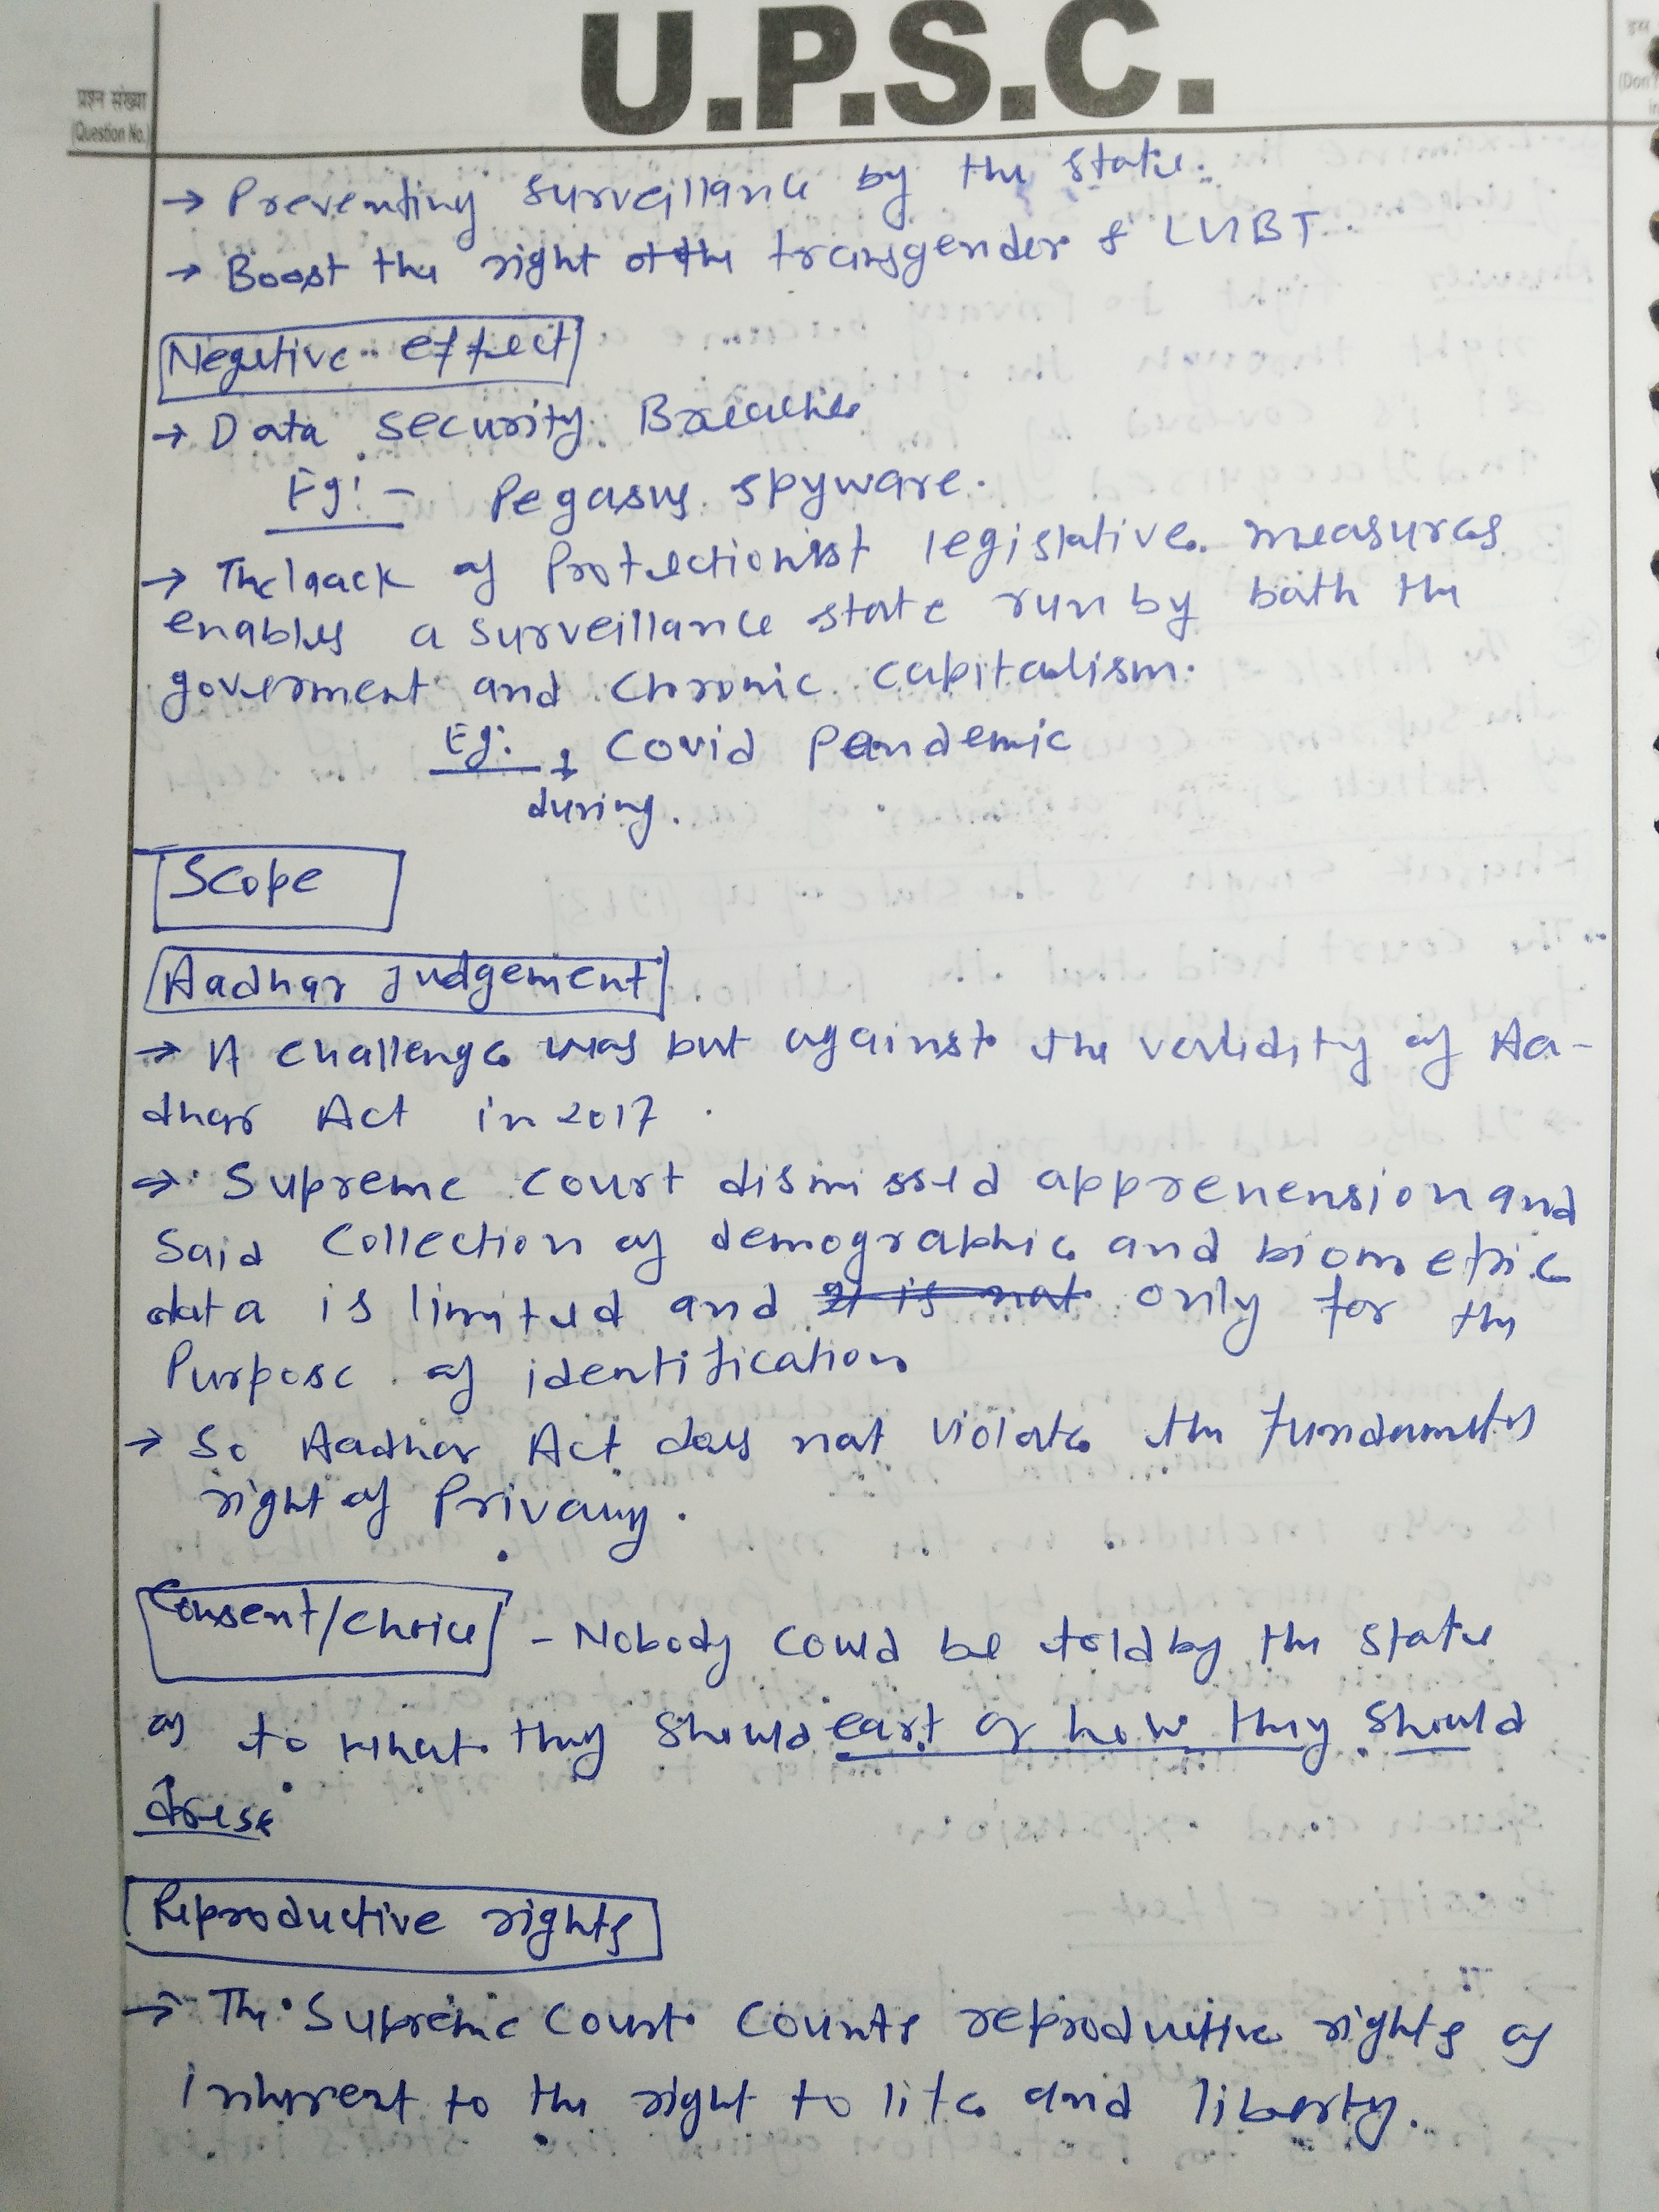 U.P.S.C.
प्रश्न संख्या
(Question No.)
(Don't
→ Preventing surveillance by the state.
→ Boost the right of the transgender & LGBT.
Negetive effect
→ Data security Breaches
Eg:- Pegasus spyware.
→ The lack of Protectionist legislative measures
enables a surveillance state run by both the
goverment and Chronic capitalism.
Eg: ↓ Covid Pandemic
during.
Scope
Aadhar Judgement
→ A challenge was but against the validity of Aa-
dhar Act in 2017.
→ Supreme court dismissed apprehension and
Said Collection of demographic and biometric
data is limited and it is not only for the
Purpose of identification
→ So Aadhar Act does not violate the fundamental
right of Privacy.
Consent/choice - Nobody could be told by the state
as to what they should eat or how they should
dress
Reproductive rights
→ The Supreme Court Counts reproductive rights as
inherent to the right to life and liberty.